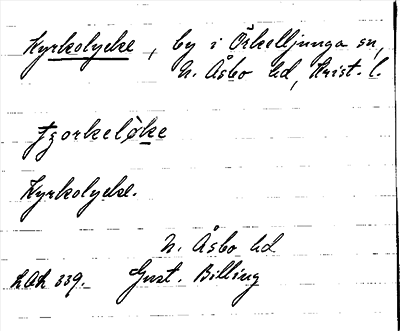 Kyrkolycke, by i Örkelljunga sn,
N. Åsbo hd, Krist. l.
Kyrkolycke.
N. Åsbo hd
Gust. Billing